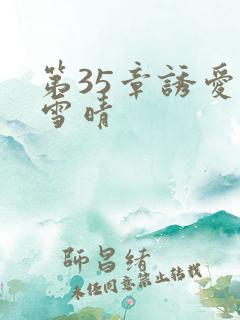 第35章誘愛
雪晴
師昌緒
未经同意禁止转载